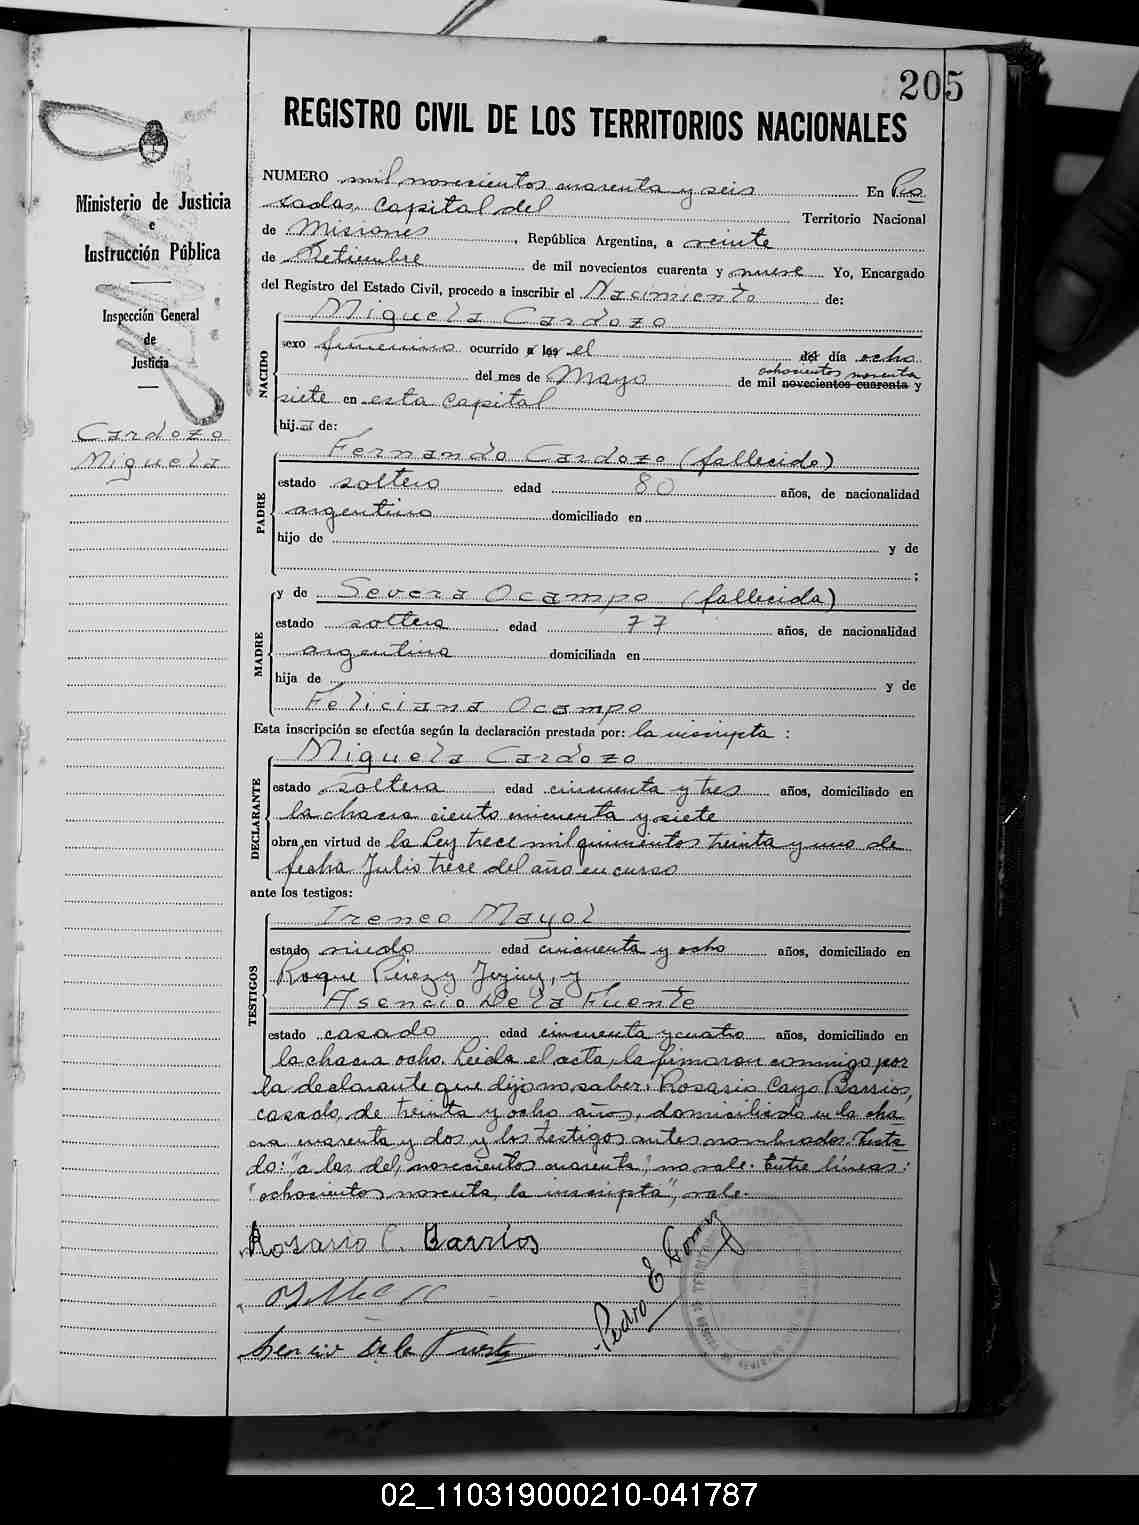 205
REGISTRO CIVIL DE LOS TERRITORIOS NACIONALES
Ministerio de Justicia
e
Instrucción Pública
Inspección General
de
Justicia
Cardozo
Miguela
NUMERO mil novecientos cuarenta y seis En Po
sadas, capital del Territorio Nacional
de Misiones, República Argentina, a veinte
de Setiembre de mil novecientos cuarenta y nueve Yo, Encargado
del Registro del Estado Civil, procedo a inscribir el Nacimiento de:
Miguela Cardozo
NACIDO
sexo femenino ocurrido a las el del día ocho
ochocientos noventa
del mes de Mayo de mil novecientos cuarenta y
siete en esta capital
hija de:
Fernando Cardozo (fallecido)
PADRE
estado soltero edad 80 años, de nacionalidad
argentino domiciliado en
hijo de y de
;
y de Severa Ocampo (fallecida)
MADRE
estado soltera edad 77 años, de nacionalidad
argentina domiciliada en
hija de y de
Feliciana Ocampo
Esta inscripción se efectúa según la declaración prestada por: la inscripta :
Miguela Cardozo
DECLARANTE
estado soltera edad cincuenta y tres años, domiciliado en
la chacra ciento cincuenta y siete
obra en virtud de la Ley trece mil quinientos treinta y uno de
fecha Julio trece del año en curso
ante los testigos:
Ireneo Mayol
TESTIGOS
estado viudo edad cincuenta y ocho años, domiciliado en
Roque Perez y Jujuy, y
Asencio De la Fuente
estado casado edad cincuenta y cuatro años, domiciliado en
la chacra ocho. Leida el acta, la firmaron conmigo por
la declarante que dijo no saber, Rosario Cayo Barrios,
casado, de treinta y ocho años, domiciliado en la cha-
cra cuarenta y dos y los testigos antes nombrados. Testa-
do: "a las del, novecientos cuarenta", no vale. Entre líneas:
"ochocientos noventa, la inscripta", vale.
Rosario C. Barrios
Pedro E Gomez
Asencio De la Fuente
02_110319000210-041787